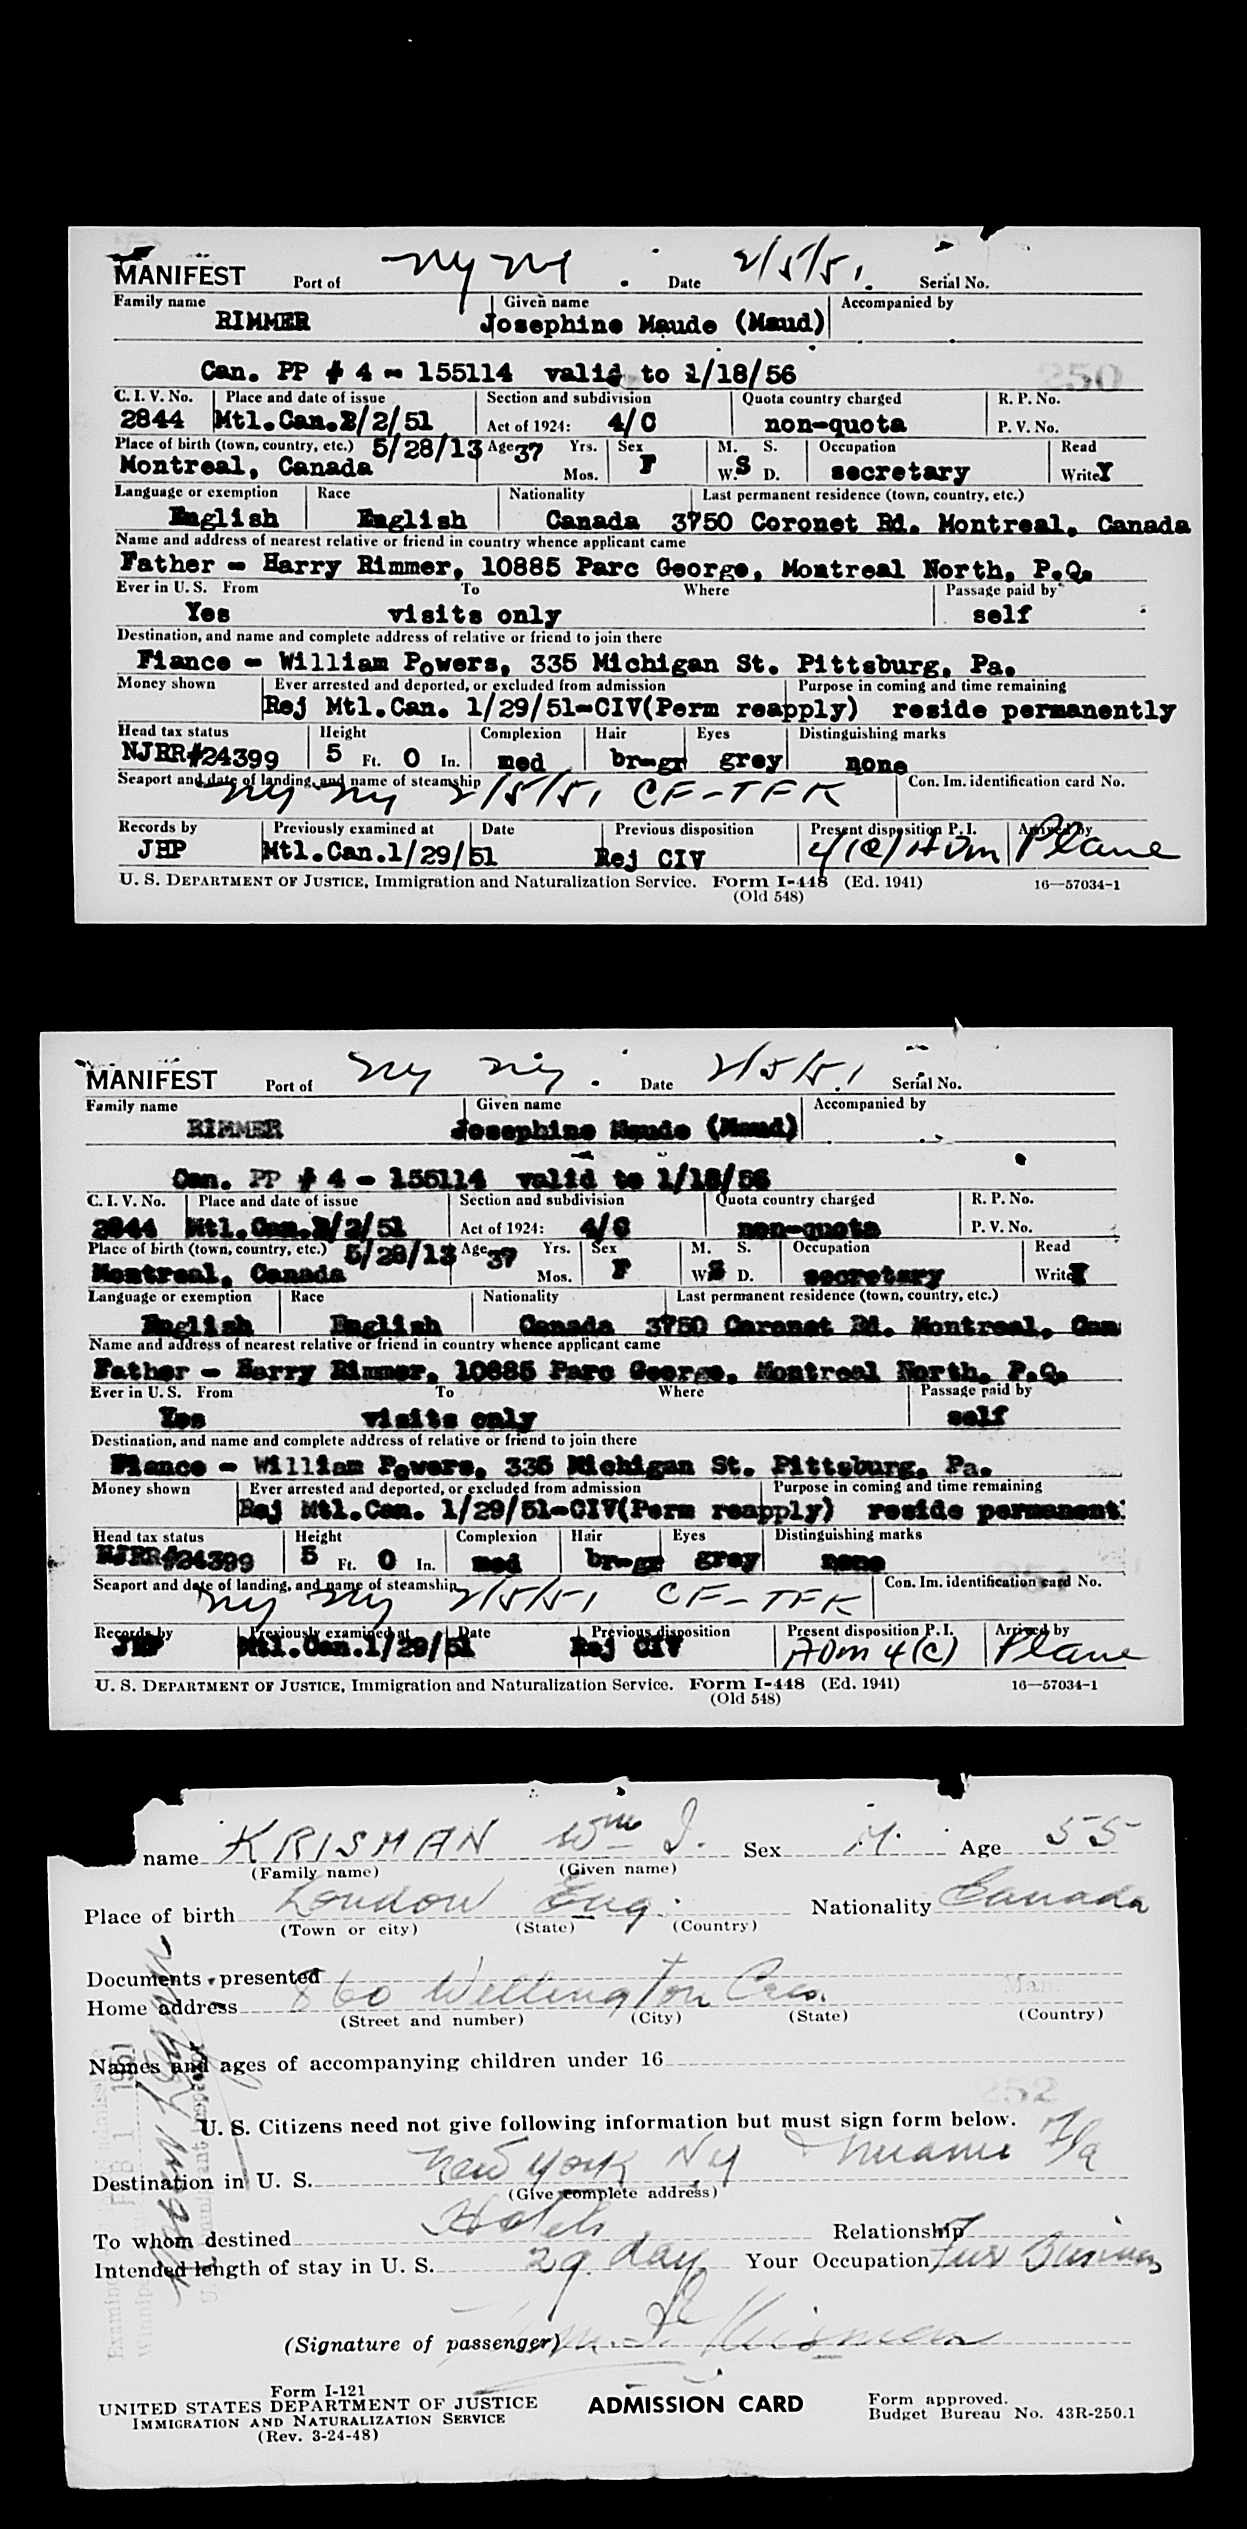 MANIFEST Port of Ny Ny Date 2/5/51 Serial No.
Family name Given name Accompanied by
RIMMER Josephine Maude (Maud)
Can. PP # 4 - 155114 valid to 1/18/56
250
C. I. V. No. Place and date of issue Section and subdivision Quota country charged R. P. No.
2844 Mtl.Can.2/2/51 Act of 1924: 4/C non-quota P. V. No.
Place of birth (town, country, etc.) 5/28/13 Age 37 Yrs. Sex M. S. Occupation Read
Montreal, Canada Mos. F W. S D. secretary Write Y
Language or exemption Race Nationality Last permanent residence (town, country, etc.)
English English Canada 3750 Coronet Rd. Montreal, Canada
Name and address of nearest relative or friend in country whence applicant came
Father - Harry Rimmer, 10885 Parc George, Montreal North, P.Q.
Ever in U. S. From To Where Passage paid by
Yes visits only self
Destination, and name and complete address of relative or friend to join there
Fiance - William Powers, 335 Michigan St. Pittsburg, Pa.
Money shown Ever arrested and deported, or excluded from admission Purpose in coming and time remaining
Rej Mtl.Can. 1/29/51-CIV(Perm reapply) reside permanently
Head tax status Height Complexion Hair Eyes Distinguishing marks
NJRR#24399 5 Ft. 0 In. med br-gr grey none
Seaport and date of landing, and name of steamship Con. Im. identification card No.
Ny Ny 2/5/51 CF-TFK
Records by Previously examined at Date Previous disposition Present disposition P. I. Arrived by
JHP Mtl.Can.1/29/51 Rej CIV 4(c) Adm Plane
U. S. DEPARTMENT OF JUSTICE, Immigration and Naturalization Service. Form I-448 (Ed. 1941) 16—57034-1
(Old 548)
MANIFEST Port of Ny Ny Date 2/5/51 Serial No.
Family name Given name Accompanied by
RIMMER Josephine Maude (Maud)
Can. PP # 4 - 155114 valid to 1/18/56
C. I. V. No. Place and date of issue Section and subdivision Quota country charged R. P. No.
2844 Mtl.Can.2/2/51 Act of 1924: 4/C non-quota P. V. No.
Place of birth (town, country, etc.) 5/28/13 Age 37 Yrs. Sex M. S. Occupation Read
Montreal, Canada Mos. F W. S D. secretary Write Y
Language or exemption Race Nationality Last permanent residence (town, country, etc.)
English English Canada 3750 Coronet Rd. Montreal, Can
Name and address of nearest relative or friend in country whence applicant came
Father - Harry Rimmer, 10885 Parc George, Montreal North, P.Q.
Ever in U. S. From To Where Passage paid by
Yes visits only self
Destination, and name and complete address of relative or friend to join there
Fiance - William Powers, 335 Michigan St. Pittsburg, Pa.
Money shown Ever arrested and deported, or excluded from admission Purpose in coming and time remaining
Rej Mtl.Can. 1/29/51-CIV(Perm reapply) reside permanent
Head tax status Height Complexion Hair Eyes Distinguishing marks
NJRR#24399 5 Ft. 0 In. med br-gr grey none
Seaport and date of landing, and name of steamship Con. Im. identification card No.
Ny Ny 2/5/51 CF-TFK
Records by Previously examined at Date Previous disposition Present disposition P. I. Arrived by
JHP Mtl.Can.1/29/51 Rej CIV Adm 4(c) Plane
U. S. DEPARTMENT OF JUSTICE, Immigration and Naturalization Service. Form I-448 (Ed. 1941) 16—57034-1
(Old 548)
name KRISMAN Wm I. Sex M. Age 55
(Family name) (Given name)
Place of birth London Eng. Nationality Canada
(Town or city) (State) (Country)
Documents presented
Home address 860 Wellington Cres. Man.
(Street and number) (City) (State) (Country)
Names and ages of accompanying children under 16
252
U. S. Citizens need not give following information but must sign form below.
Destination in U. S. New York Ny & Miami Fla
(Give complete address)
To whom destined Hotels Relationship
Intended length of stay in U. S. 29 day Your Occupation Fur Business
(Signature of passenger) Wm. I. Krisman
Form I-121
UNITED STATES DEPARTMENT OF JUSTICE ADMISSION CARD Form approved.
IMMIGRATION AND NATURALIZATION SERVICE Budget Bureau No. 43R-250.1
(Rev. 3-24-48)